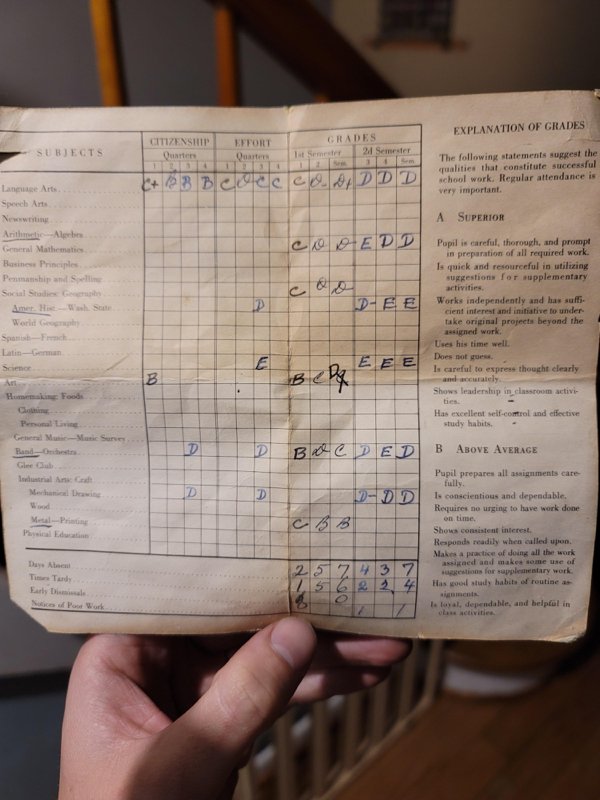 SUBJECTS CITIZENSHIP EFFORT GRADES
Quarters Quarters 1st Semester 2d Semester
1 2 3 4 1 2 3 4 1 2 Sem. 3 4 Sem.
Language Arts C+ B B B C D C C C D- D+ D D D
Speech Arts
Newswriting
Arithmetic—Algebra
General Mathematics C D D- E D D
Business Principles
Penmanship and Spelling
Social Studies: Geography C D D
Amer. Hist.—Wash. State D D- E E
World Geography
Spanish—French
Latin—German
Science E E E E
Art B B C
Homemaking: Foods
Clothing
Personal Living
General Music—Music Survey
Band—Orchestra D D B D C D E D
Glee Club
Industrial Arts: Craft
Mechanical Drawing D D D- D D
Wood
Metal—Printing C B B
Physical Education
Days Absent 2 5 7 4 3 7
Times Tardy 1 5 6 2 2 4
Early Dismissals 0
Notices of Poor Work 1 1
EXPLANATION OF GRADES
The following statements suggest the
qualities that constitute successful
school work. Regular attendance is
very important.
A SUPERIOR
Pupil is careful, thorough, and prompt
in preparation of all required work.
Is quick and resourceful in utilizing
suggestions for supplementary
activities.
Works independently and has suffi-
cient interest and initiative to under-
take original projects beyond the
assigned work.
Uses his time well.
Does not guess.
Is careful to express thought clearly
and accurately.
Shows leadership in classroom activi-
ties.
Has excellent self-control and effective
study habits.
B ABOVE AVERAGE
Pupil prepares all assignments care-
fully.
Is conscientious and dependable.
Requires no urging to have work done
on time.
Shows consistent interest.
Responds readily when called upon.
Makes a practice of doing all the work
assigned and makes some use of
suggestions for supplementary work.
Has good study habits of routine as-
signments.
Is loyal, dependable, and helpful in
class activities.